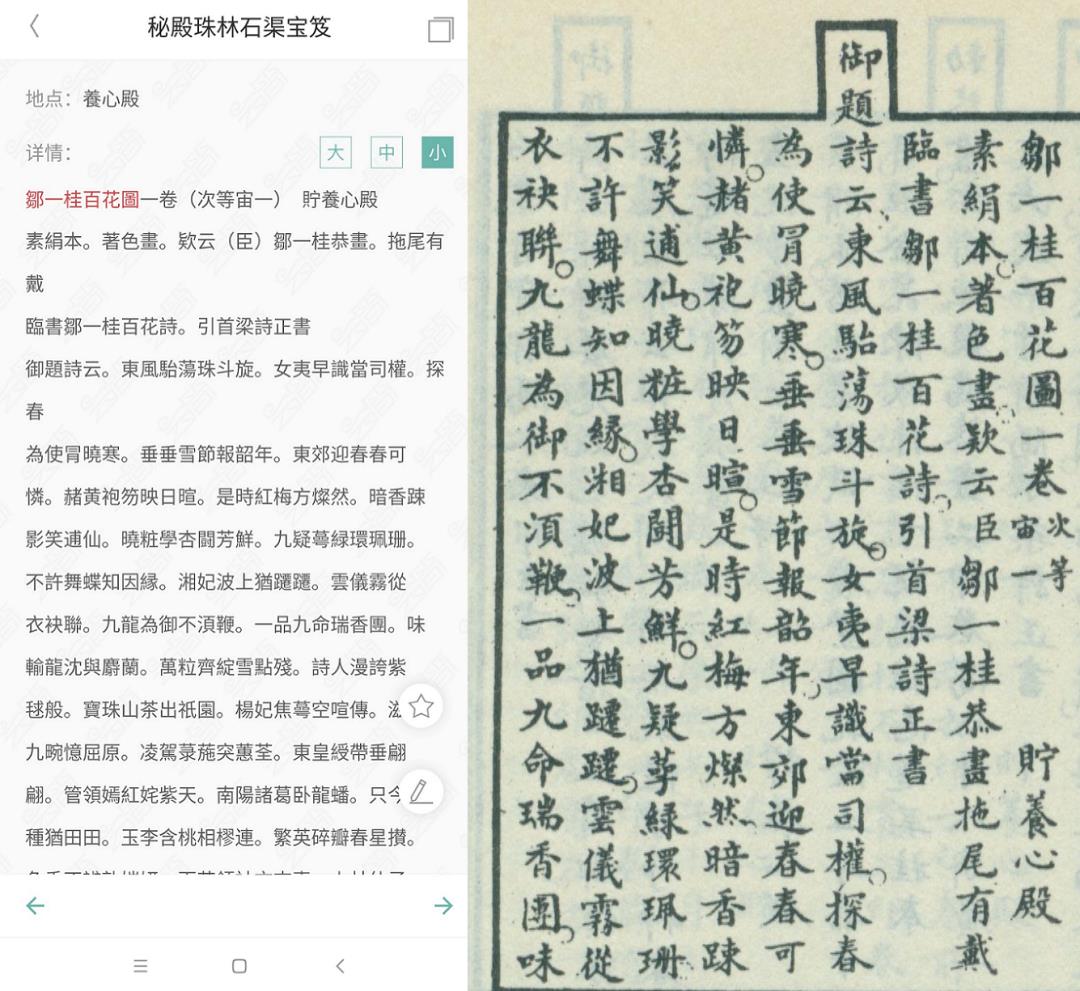 秘殿珠林石渠宝笈
地点：養心殿
详情：
大 中 小
鄒一桂百花圖一卷（次等宙一） 貯養心殿
素絹本。著色畫。欵云（臣）鄒一桂恭畫。拖尾有
戴
臨書鄒一桂百花詩。引首梁詩正書
御題詩云。東風駘蕩珠斗旋。女夷早識當司權。探
春
為使冐曉寒。垂垂雪節報韶年。東郊迎春春可
憐。赭黄袍笏映日暄。是時紅梅方燦然。暗香踈
影笑逋仙。曉粧學杏闘芳鮮。九疑蕚緑環珮珊。
不許舞蝶知因緣。湘妃波上猶躚躚。雲儀霧從
衣袂聯。九龍為御不湏鞭。一品九命瑞香團。味
輸龍沈與麝蘭。萬粒齊綻雪點殘。詩人漫誇紫
毬般。寶珠山茶出祇園。楊妃焦蕚空喧傳。滋
九畹憶屈原。凌駕菉葹突蕙荃。東皇綬帶垂翩
翩。管領嫣紅姹紫天。南陽諸葛卧龍蟠。只今
種猶田田。玉李含桃相樛連。繁英碎瓣春星攅。
鄒一桂百花圖一卷 次等宙一 貯養心殿
素絹本著色畫欵云臣鄒一桂恭畫拖尾有戴
臨書鄒一桂百花詩引首梁詩正書
御題詩云東風駘蕩珠斗旋女夷早識當司權探春
為使冐曉寒垂垂雪節報韶年東郊迎春春可
憐赭黄袍笏映日暄是時紅梅方燦然暗香踈
影笑逋仙曉粧學杏闘芳鮮九疑蕚緑環珮珊
不許舞蝶知因緣湘妃波上猶躚躚雲儀霧從
衣袂聯九龍為御不湏鞭一品九命瑞香團味